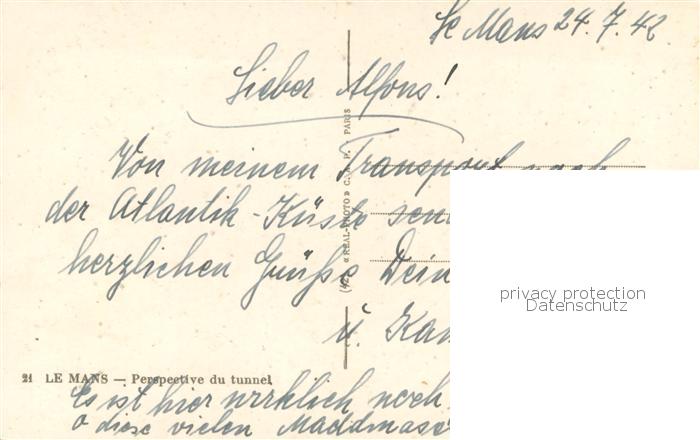 Le Mans 24.7.42
Lieber Alfons!
Von meinem Transport nach
der Atlantik-Küste
herzlichen Grüße Dein
u.
(42) « REAL-PHOTO » C. A. P. PARIS
privacy protection
Datenschutz
21 LE MANS — Perspective du tunnel
Es ist hier wirklich noch
o diese vielen